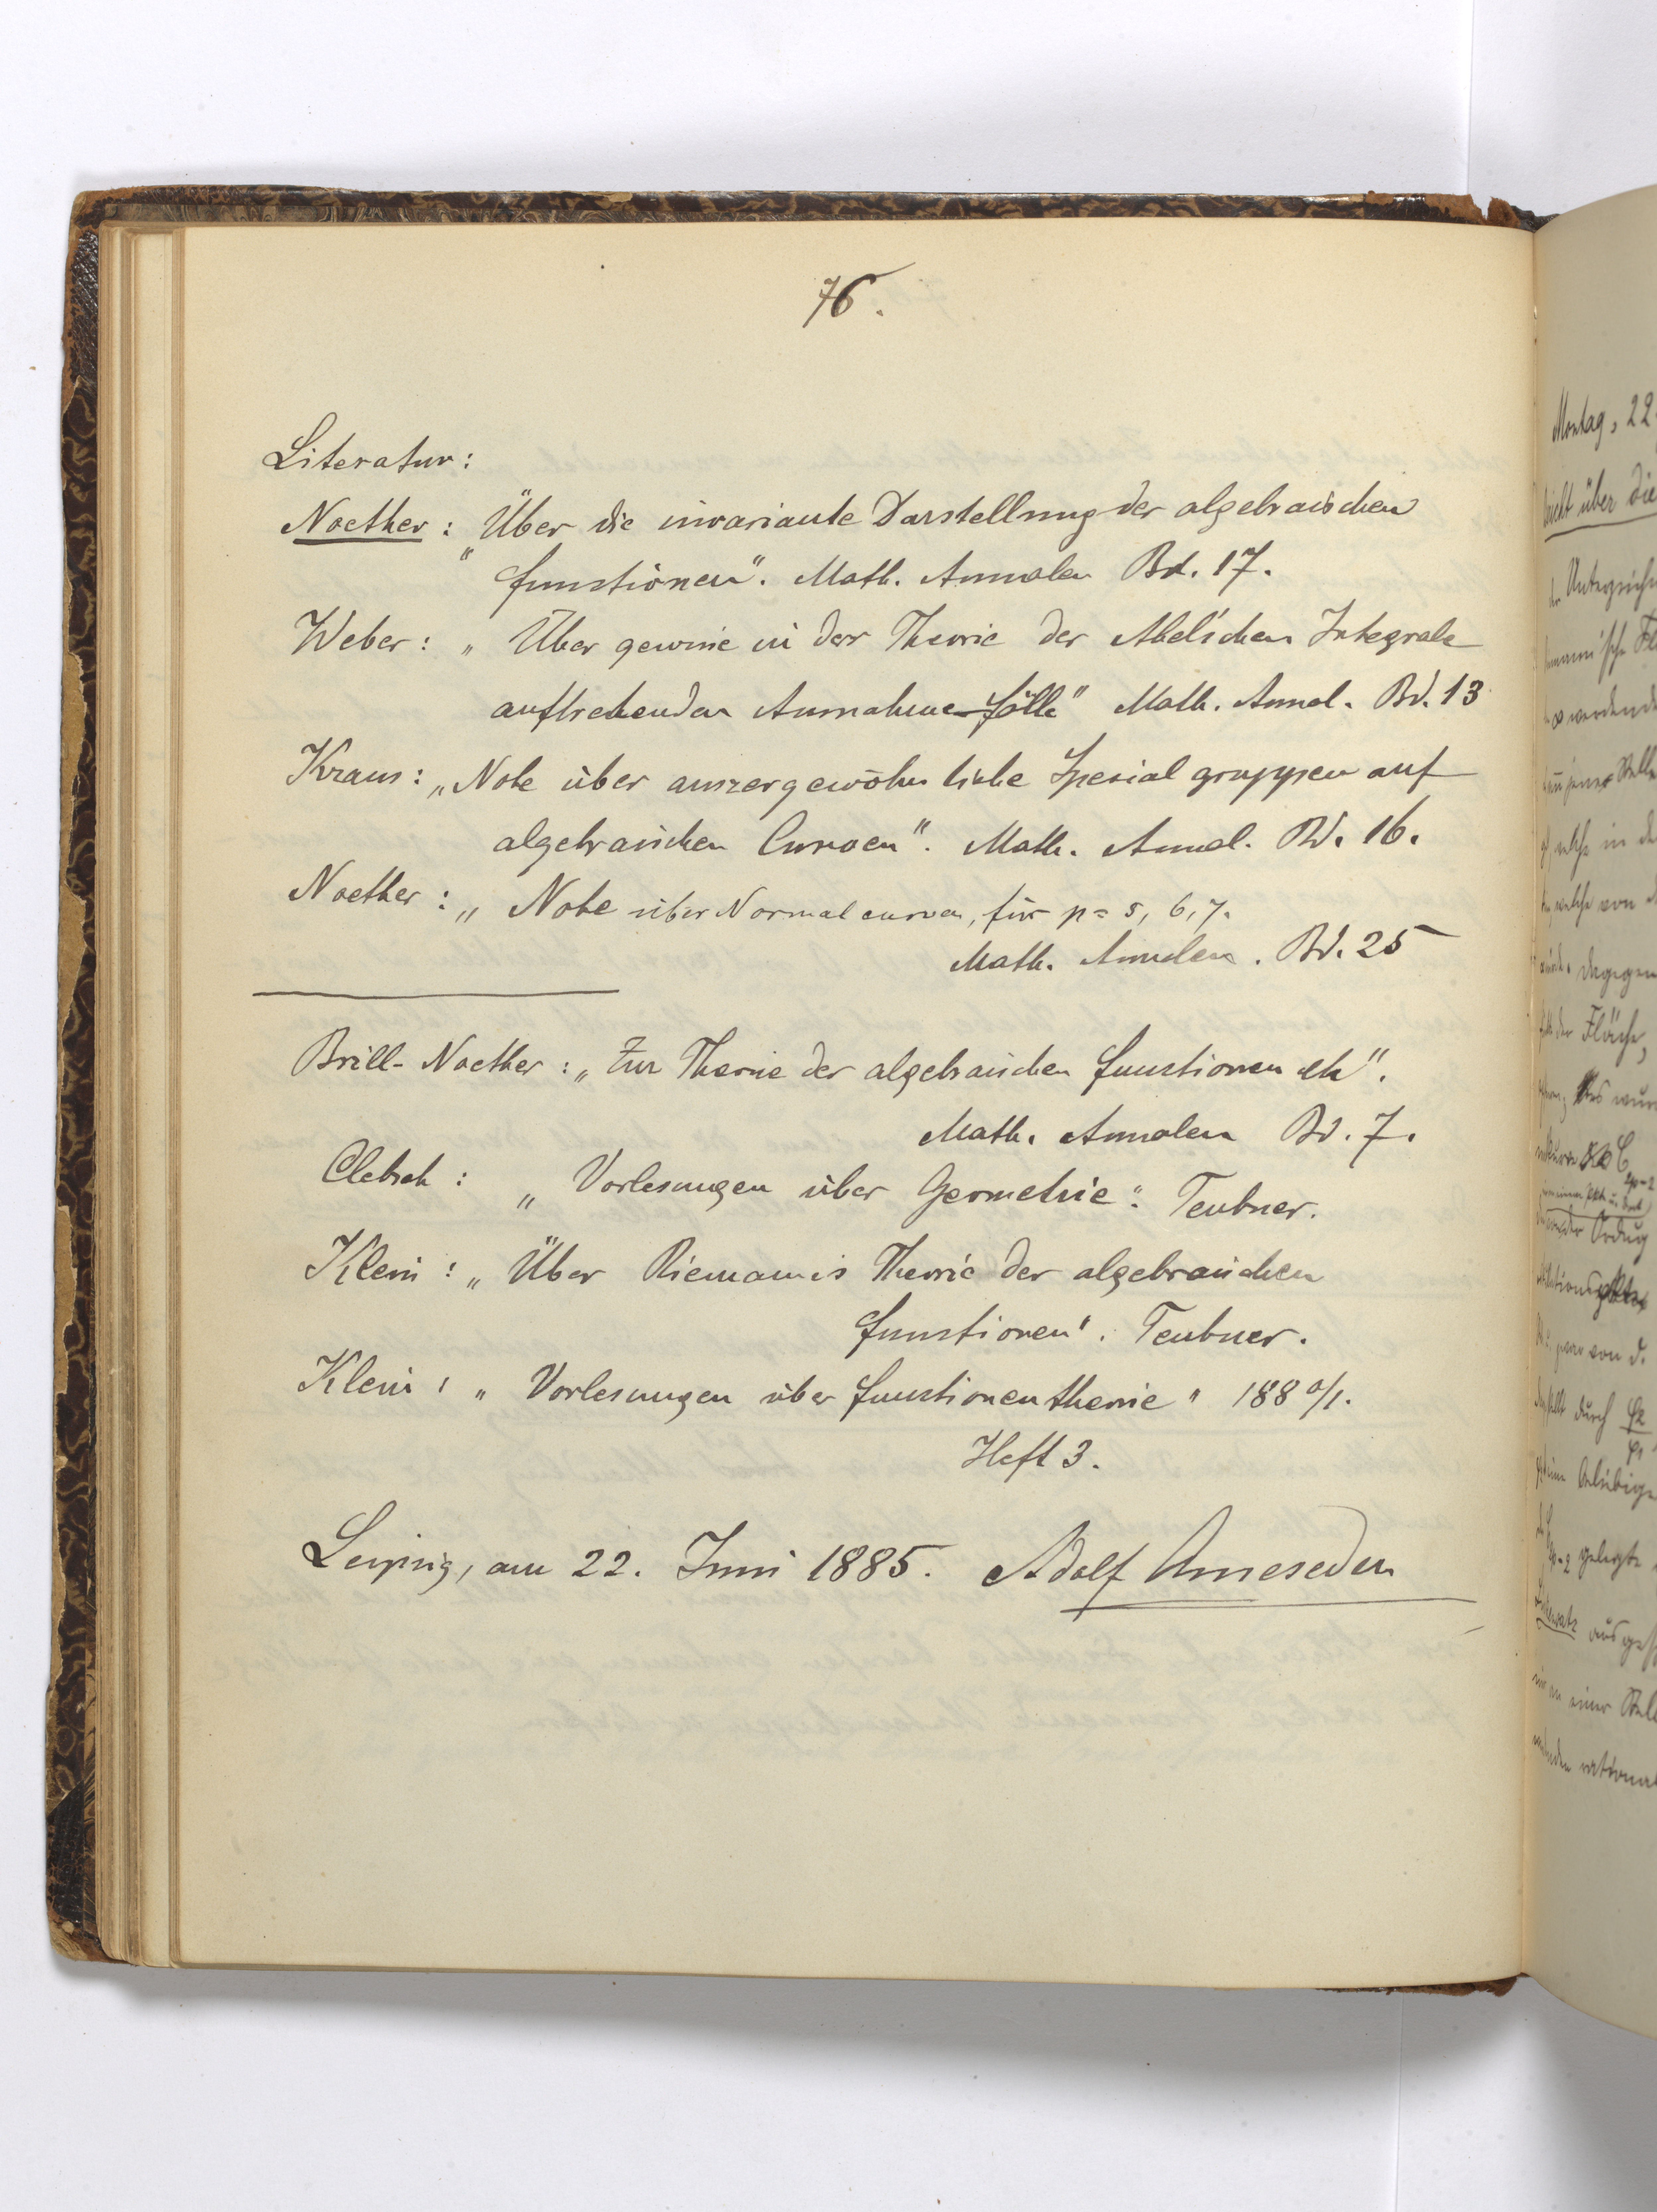 76.
Literatur:
Noether: „Über die invariante Darstellung der algebraischen
Functionen". Math. Annalen Bd. 17.
Weber: „Über gewisse in der Theorie der Abel'schen Integrale
auftretenden Ausnahme-Fälle" Math. Annal. Bd. 13
Kraus: „Note über aussergewöhnliche Spezialgruppen auf
algebraischen Curven". Math. Annal. Bd. 16.
Noether: „Note über Normalcurven, für p = 5, 6, 7.
Math. Annalen. Bd. 25
Brill-Noether: „Zur Theorie der algebraischen Functionen etc".
Math. Annalen Bd. 7.
Clebsch: „Vorlesungen über Geometrie". Teubner.
Klein: „Über Riemann's Theorie der algebraischen
Functionen". Teubner.
Klein: „Vorlesungen über Functionentheorie" 1880/1.
Heft 3.
Leipzig, am 22. Juni 1885. Adolf Ameseder
Montag, 22
über die
in der
welche von
dagegen
Fläche,
wur
Ordnung
von d.
durch
gelegte
einer